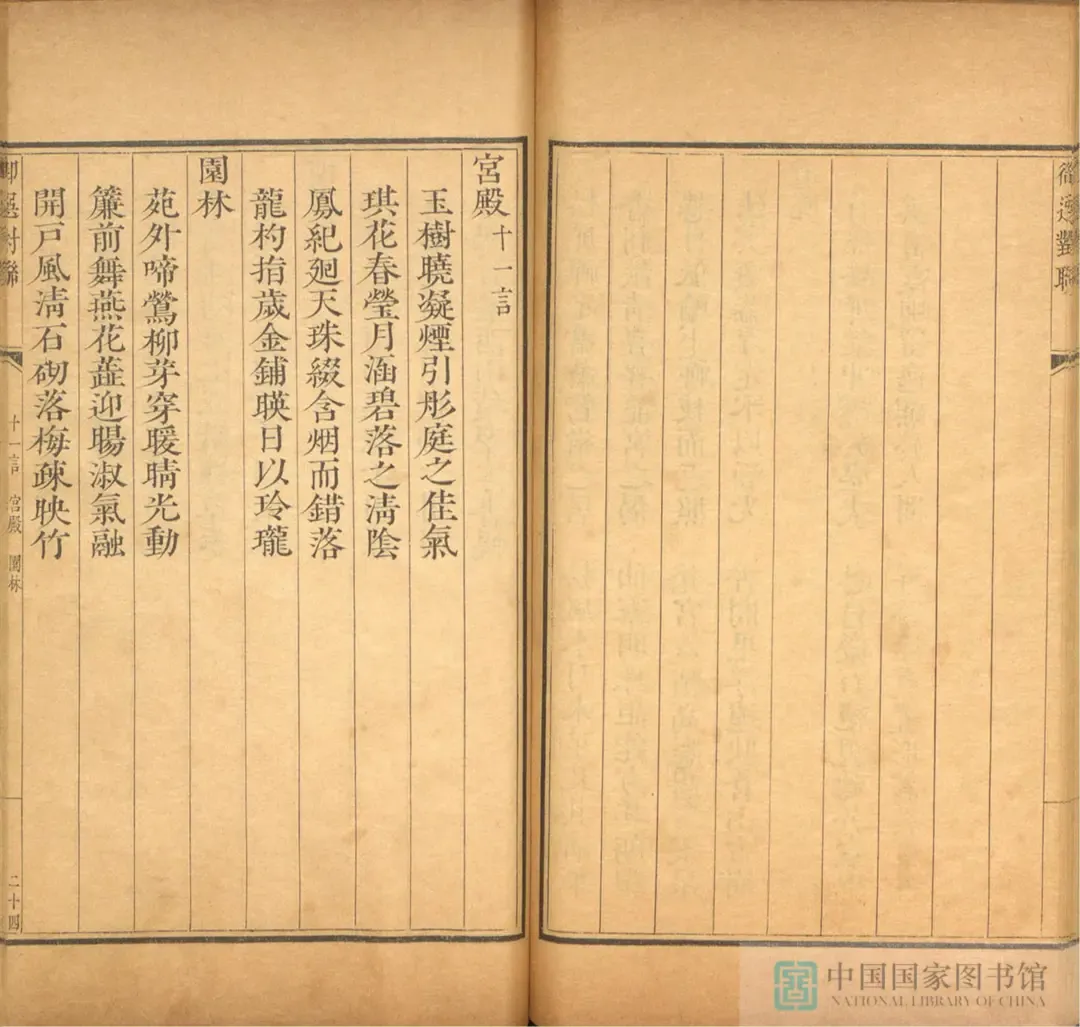 御選對聯
宮殿十一言
玉樹曉凝煙引彤庭之佳氣
琪花春瑩月涵碧落之淸陰
鳳紀廻天珠綴含烟而錯落
龍杓指歲金鋪暎日以玲瓏
園林
苑外啼鶯柳芽穿暖晴光動
簾前舞燕花蘂迎暘淑氣融
開戸風淸石砌落梅疎映竹
御選對聯
十一言 宮殿 園林
二十四
中国国家图书馆
NATIONAL LIBRARY OF CHINA